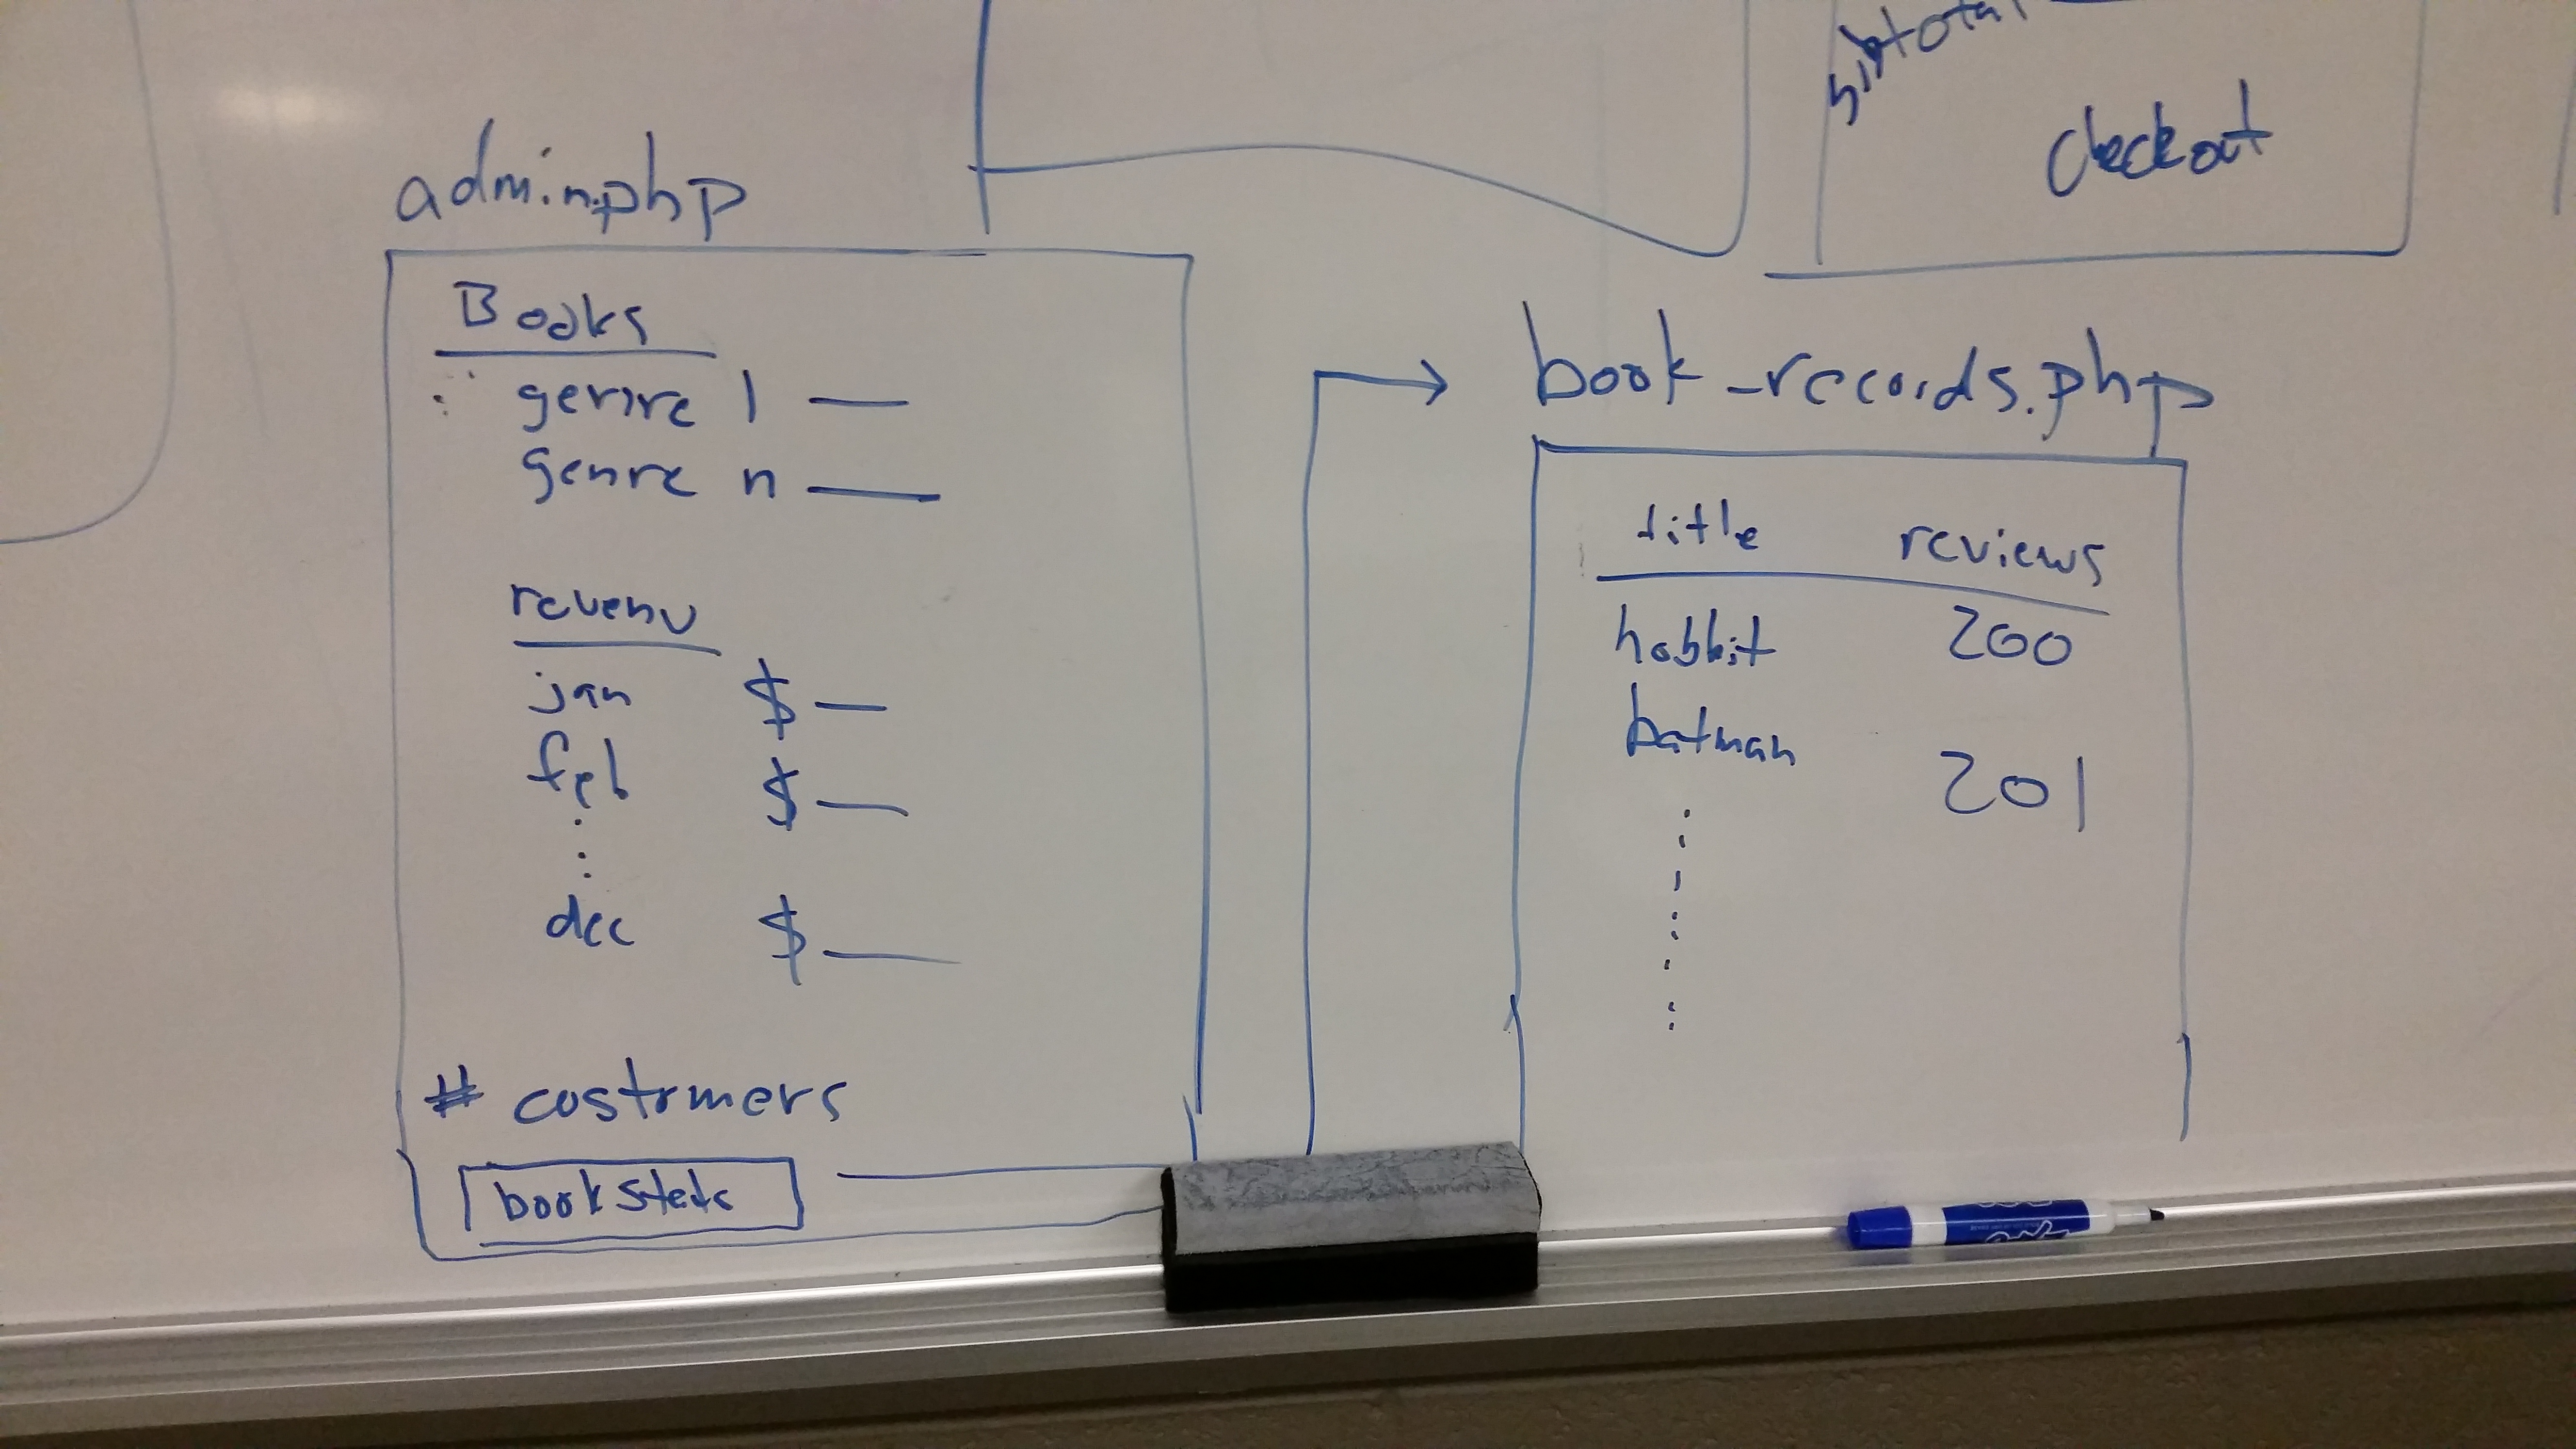 subtotal
checkout
admin.php
Books
genre 1 —
genre n —
revenu
jan $ —
feb $ —
dec $ —
# costomers
book stets
book_records.php
title reviews
hobbit 200
batman
201